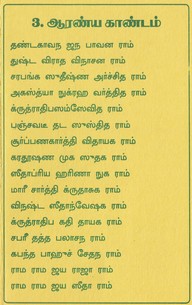 3. ஆரண்ய காண்டம்
தண்டகாவந ஜந பாவன ராம்
துஷ்ட விராத விநாசன ராம்
சரபங்க ஸுதீஷ்ண அர்ச்சித ராம்
அகஸ்த்யா நுக்ரஹ வர்த்தித ராம்
க்ருத்ராதிபஸம்ஸேவித ராம்
பஞ்சவடீ தட ஸுஸ்தித ராம்
சூர்ப்பணகார்த்தி விதாயக ராம்
கரதூஷண முக ஸுதக ராம்
ஸீதாப்ரிய ஹரிணா நுக ராம்
மாரீ சார்த்தி க்ருதாசுக ராம்
விநஷ்ட ஸீதாந்வேஷக ராம்
க்ருத்ராதிப கதி தாயக ராம்
சபரீ தத்த பலாசந ராம்
கபந்த பாஹுச் சேதந ராம்
ராம ராம ஜய ராஜா ராம்
ராம ராம ஜய ஸீதா ராம்